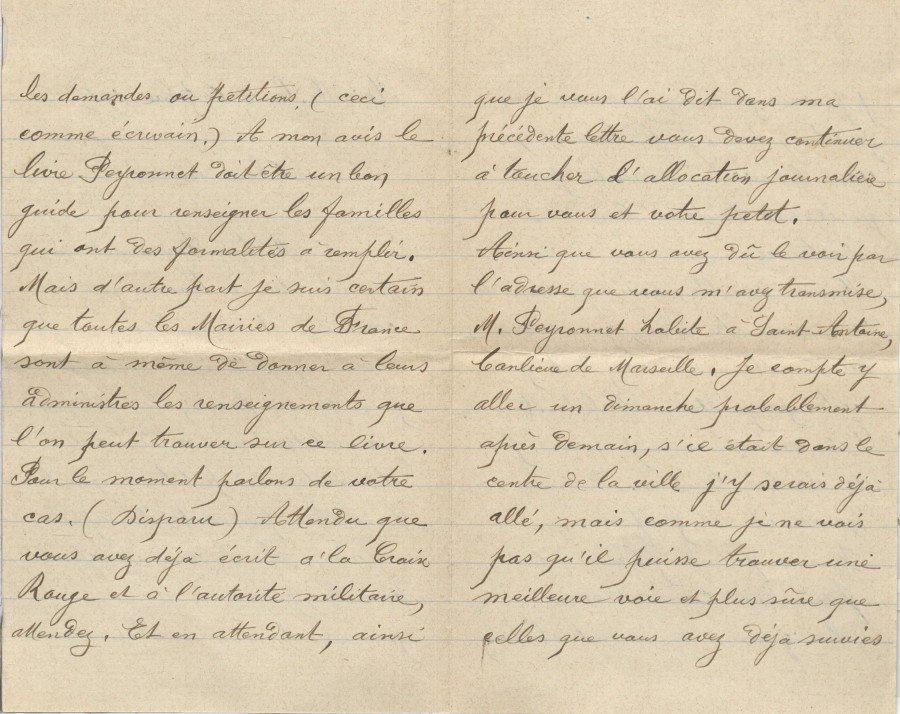 les demandes ou pétitions, (ceci
comme écrivain.) A mon avis le
livre Peyronnet doit être un bon
guide pour renseigner les familles
qui ont des formaletés à remplir.
Mais d'autre part je suis certain
que toutes les Mairies de France
sont à même de donner à leurs
administrés les renseignements que
l'on peut trouver sur ce livre.
Pour le moment parlons de votre
cas. (Disparu) Attendu que
vous avez déjà écrit à la Croix
Rouge et à l'autorité militaire,
attendez. Et en attendant, ainsi
que je vous l'ai dit dans ma
précédente lettre vous devez continuer
à toucher l'allocation journalière
pour vous et votre petit.
Ainsi que vous avez dû le voir par
l'adresse que vous m'avez transmise,
M. Peyronnet habite à Saint-Antoine,
banlieue de Marseille. Je compte y
aller un dimanche probablement
après demain, s'il était dans le
centre de la ville j'y serais déjà
allé, mais comme je ne vois
pas qu'il puisse trouver une
meilleure voie et plus sûre que
celles que vous avez déjà suivies